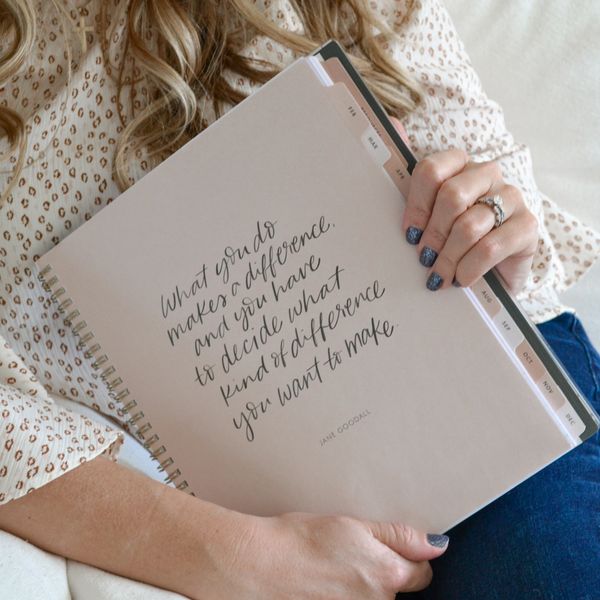 What you do
makes a difference,
and you have
to decide what
kind of difference
you want to make
JANE GOODALL
FEB
MAR
APR
AUG
SEP
OCT
NOV
DEC